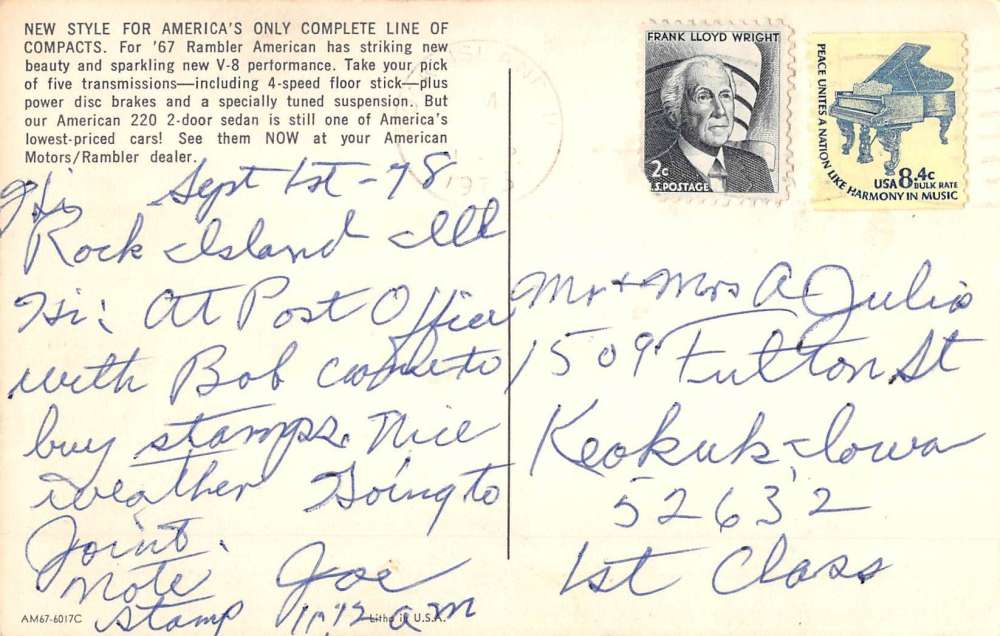 NEW STYLE FOR AMERICA'S ONLY COMPLETE LINE OF
COMPACTS. For '67 Rambler American has striking new
beauty and sparkling new V-8 performance. Take your pick
of five transmissions—including 4-speed floor stick—plus
power disc brakes and a specially tuned suspension. But
our American 220 2-door sedan is still one of America's
lowest-priced cars! See them NOW at your American
Motors/Rambler dealer.
Sept 1st - 78
Rock Island Ill
Hi: At Post Office
with Bob came to
buy stamps. Nice
weather Going to
Joint.
Note Joe
Stamp 11:12 am
AM67-6017C
Litho in U.S.A.
FRANK LLOYD WRIGHT
2c
U.S. POSTAGE
PEACE UNITES A NATION LIKE HARMONY IN MUSIC
USA 8.4c
BULK RATE
Mr + Mrs A Julio
1509 Fulton St
Keokuk, Iowa
52632
1st Class